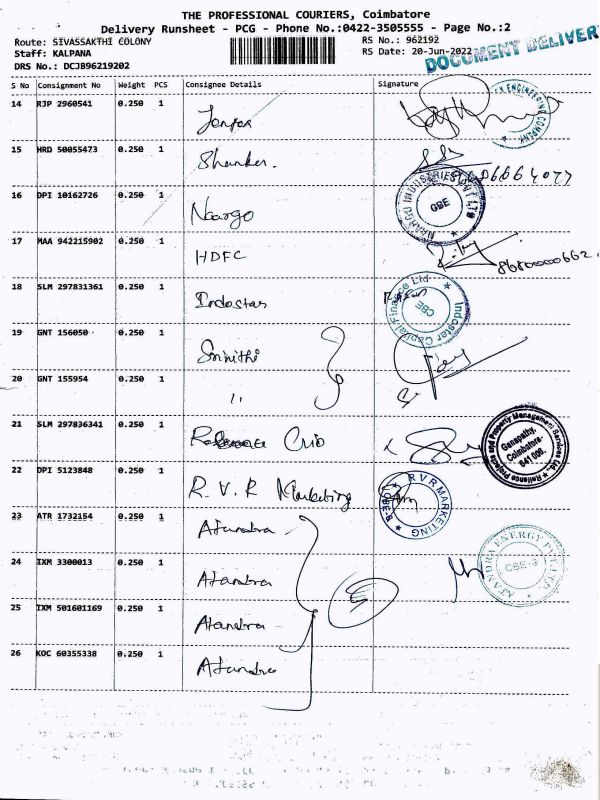 THE PROFESSIONAL COURIERS, Coimbatore
Delivery Runsheet - PCG - Phone No.:0422-3505555 - Page No.:2
Route: SIVASSAKTHI COLONY
Staff: KALPANA
DRS No.: DCJB96219202
RS No.: 962192
RS Date: 20-Jun-2022
DOCUMENT DELIVERY
S No Consignment No Weight PCS Consignee Details Signature
14 RJP 2960541 0.250 1
ENGINEERING COMPANY
15 HRD 50055473 0.250 1 Shanker
16 DPI 10162726 0.250 1 Naargo
NAARGO INDUSTRIES PVT LTD
CBE
17 MAA 942215902 0.250 1 HDFC
8680000662
18 SLM 297831361 0.250 1 Indostar
Indostar Capital Finance Ltd
CBE
19 GNT 156050 0.250 1 Srinithi
20 GNT 155954 0.250 1 "
21 SLM 297836341 0.250 1
Reliance Projects and Property Management Services Ltd.
Ganapathy,
Coimbatore-
641 006.
22 DPI 5123848 0.250 1 R.V.R Marketing
RVR MARKETING
23 ATR 1732154 0.250 1 Atandra
24 IXM 3300013 0.250 1 Atandra
ATANDRA ENERGY PVT LTD
CBE-3
25 IXM 501601169 0.250 1 Atandra
26 KOC 60355338 0.250 1 Atandra